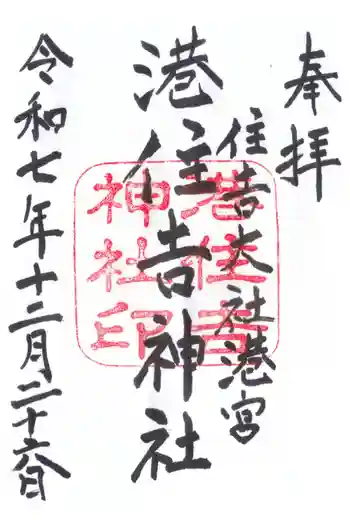 奉拝
住吉大社港宮
港住吉神社
令和七年十二月二十六日
港住吉
神社印